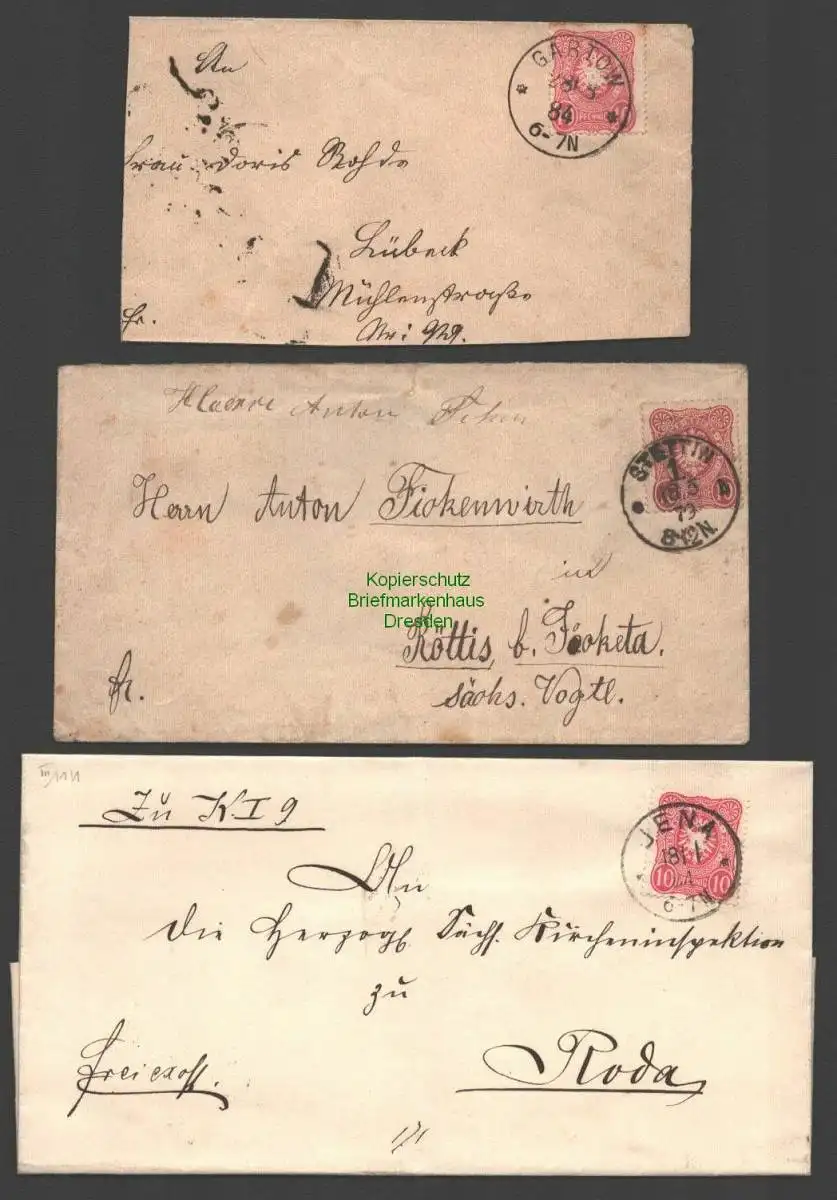 An
GARTOW
84
6-7N
Frau Doris Rohde
Lübeck
Mühlenstraße
fr.
STETTIN
1.
79
8-12N.
Anton
Herrn Anton Fickenwirth
in
Kopierschutz
Briefmarkenhaus
Dresden
Röttis, b. Jocketa.
fr.
sächs. Vogtl.
Zu K I 9
JENA
18 1
6-7N
10 10
An
die Herzogl. Sächs. Kircheninspektion
zu
Roda